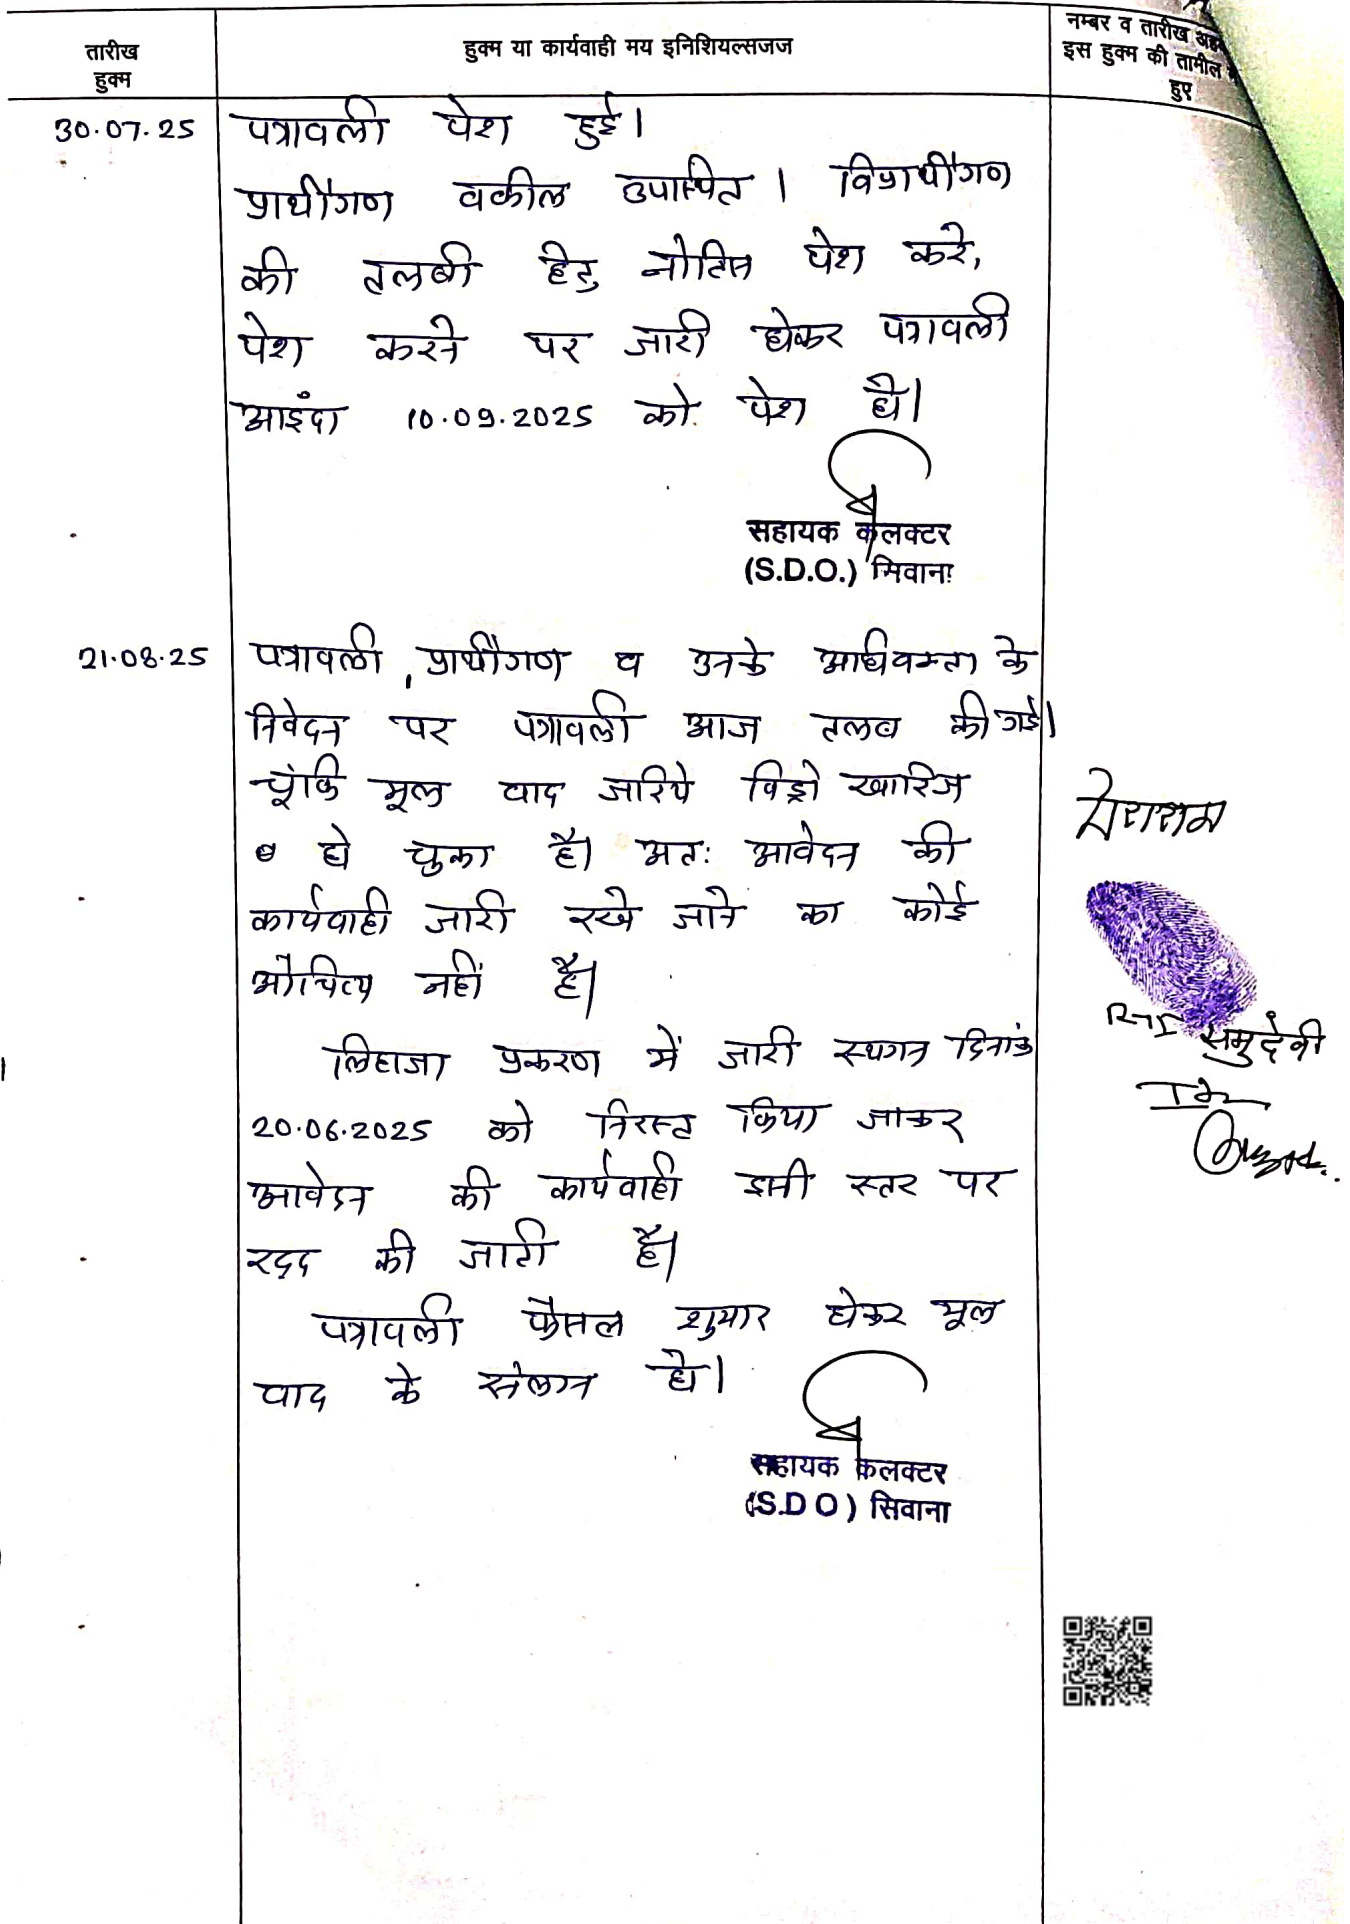 तारीख
हुक्म
हुक्म या कार्यवाही मय इनिशियल्सजज
नम्बर व तारीख
इस हुक्म की तामील
हुए
30.07.25 पत्रावली पेश हुई।
प्रार्थीगण वकील उपस्थित। विप्रार्थीगण
की तलबी हेतु नोटिस पेश करे,
पेश करने पर जारी होकर पत्रावली
आइंदा 10.09.2025 को पेश हो।
सहायक कलक्टर
(S.D.O.) सिवाना
21.08.25 पत्रावली, प्रार्थीगण व उनके अधिवक्ता के
निवेदन पर पत्रावली आज तलब की गई।
चूंकि मूल वाद जरिये विड्रो खारिज
हो चुका है। अतः आवेदन की
कार्यवाही जारी रखे जाने का कोई
औचित्य नहीं है।
लिहाजा प्रकरण में जारी स्थगन दिनांक
20.06.2025 को निरस्त किया जाकर
आवेदन की कार्यवाही इसी स्तर पर
रद्द की जाती है।
पत्रावली फैसल शुमार होकर मूल
वाद के संलग्न हो।
सहायक कलक्टर
(S.D.O) सिवाना
RTI समुदेवी